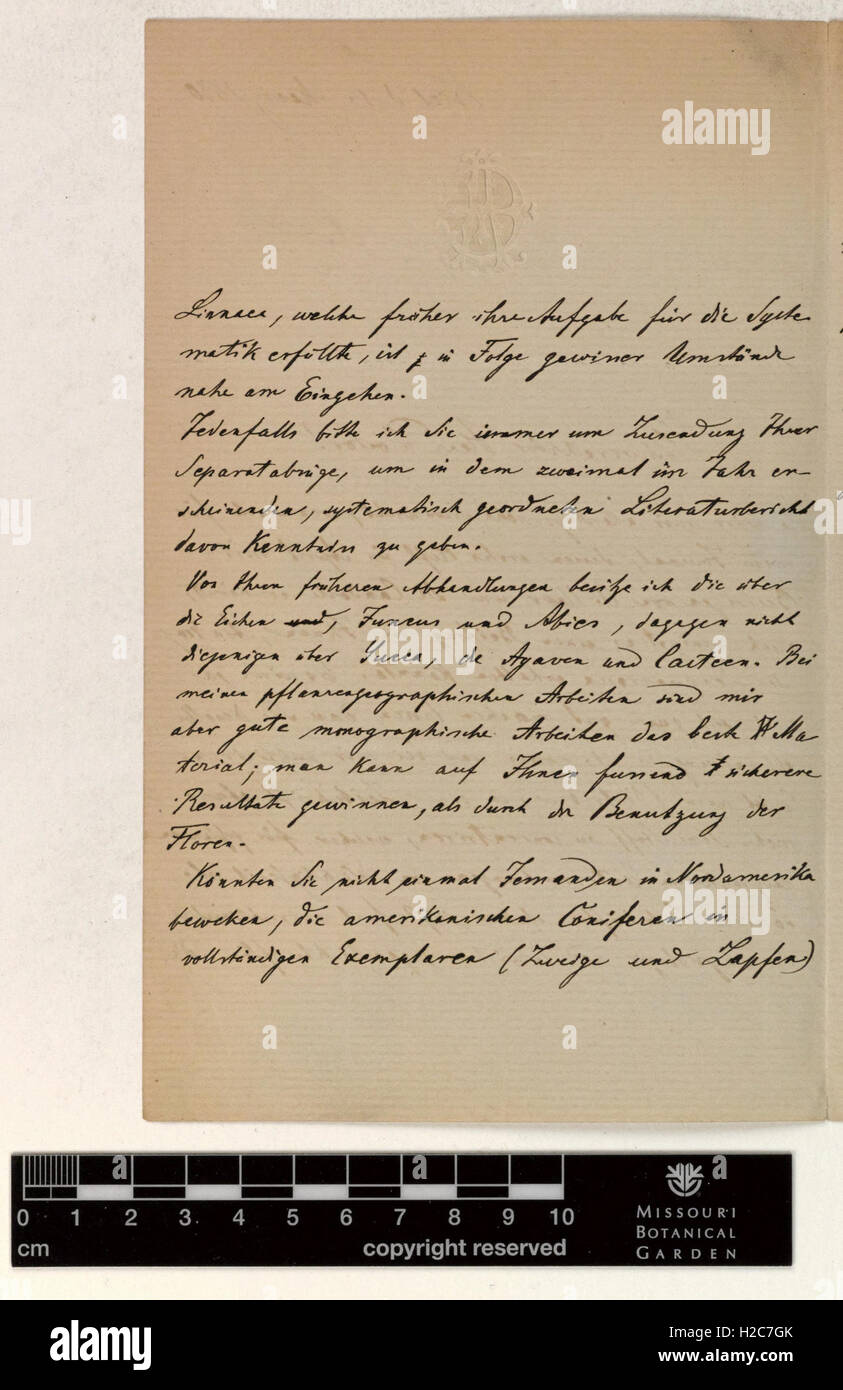 Linnaea, welche früher ihre Aufgabe für die Syste-
matik erfüllte, ist in Folge gewisser Umstände
nahe am Eingehen.
Jedenfalls bitte ich Sie immer um Zusendung Ihrer
Separatabzüge, um in dem zweimal im Jahr er-
scheinenden, systematisch geordneten Literaturbericht
davon Kenntniss zu geben.
Von Ihren früheren Abhandlungen besitze ich die über
die Eichen und, Juncus und Abies, dagegen nicht
diejenigen über Yucca, die Agaven und Cacteen. Bei
meinen pflanzengeographischen Arbeiten sind mir
aber gute monographische Arbeiten das beste Ma
terial; man kann auf Ihnen fussend sicherere
Resultate gewinnen, als durch die Benutzung der
Floren.
Könnten Sie nicht einmal Jemanden in Nordamerika
beweken, die amerikanischen Coniferen in
vollständigen Exemplaren (Zweige und Zapfen)
0 1 2 3 4 5 6 7 8 9 10
cm
copyright reserved
MISSOURI
BOTANICAL
GARDEN
alamy
a
alamy stock photo
H2C7GK
www.alamy.com